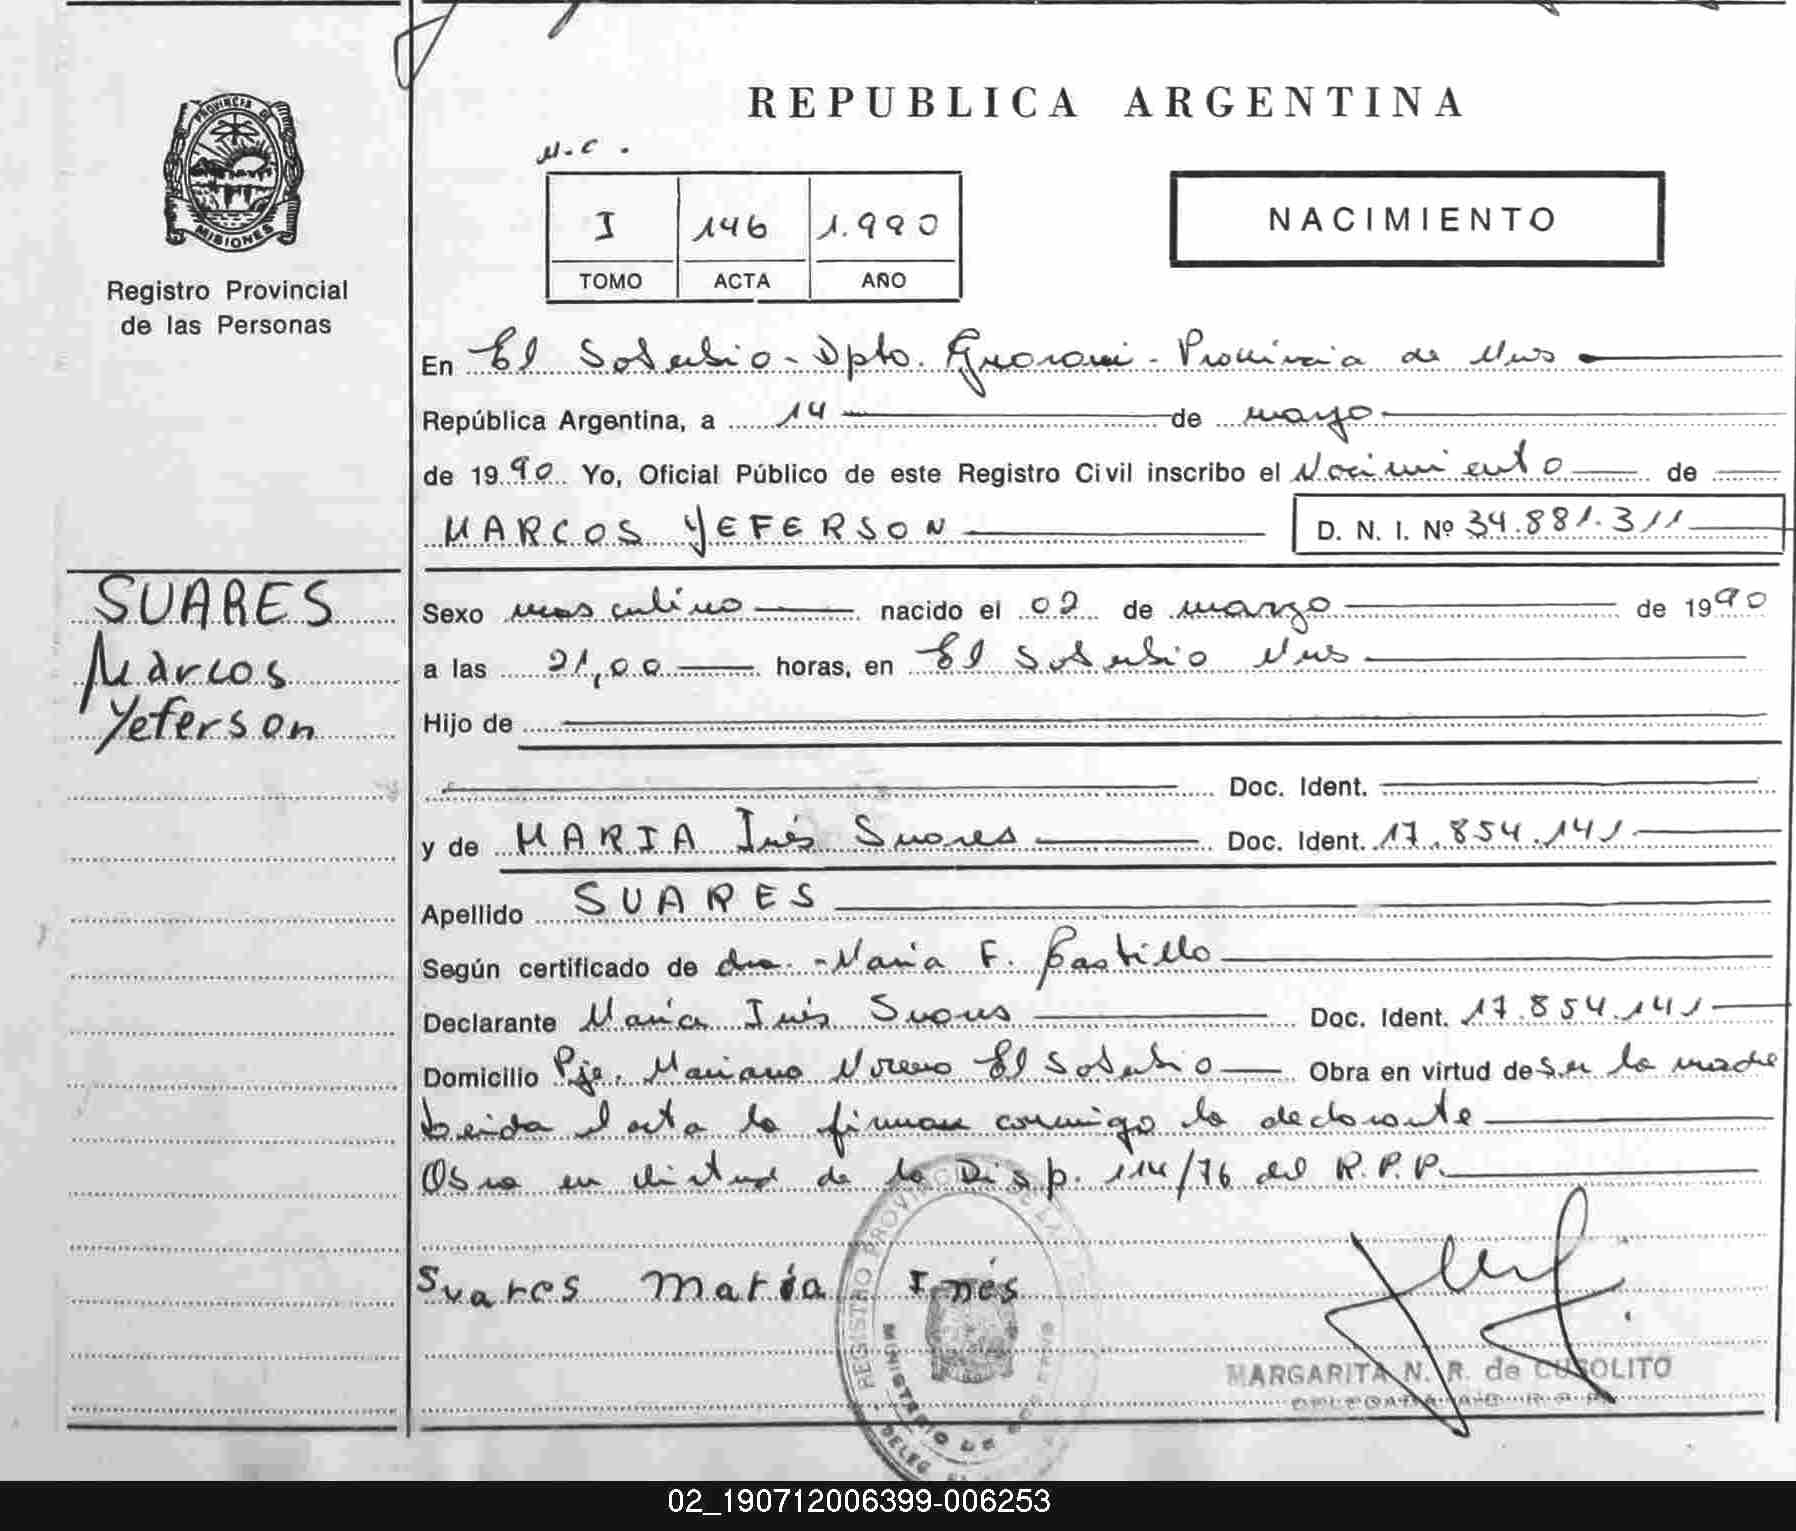 REPUBLICA ARGENTINA
PROVINCIA DE
MISIONES
Registro Provincial
de las Personas
M.C.
I 146 1.990
TOMO ACTA AÑO
NACIMIENTO
En El Soberbio - Dpto. Guarani - Provincia de Mnes
República Argentina, a 14 de mayo
de 1990 Yo, Oficial Público de este Registro Civil inscribo el Nacimiento de
MARCOS YEFERSON D. N. I. Nº 34.881.311
SUARES
Marcos
Yeferson
Sexo masculino nacido el 02 de marzo de 1990
a las 21,00 horas, en El Soberbio Mnes
Hijo de
Doc. Ident.
y de MARIA Inés Suares Doc. Ident. 17.854.141
Apellido SUARES
Según certificado de dra. María F. Castillo
Declarante María Inés Suares Doc. Ident. 17.854.141
Domicilio Pje. Mariano Moreno El Soberbio Obra en virtud de Ser la madre
Leida el acta la firman conmigo la declarante
Obra en virtud de la Disp. 114/76 del R.P.P.
Suares María Inés
REGISTRO PROVINCIAL DE LA
MINISTERIO DE
DELEG
MARGARITA N. R. de CUSOLITO
DELEGADA
02_190712006399-006253